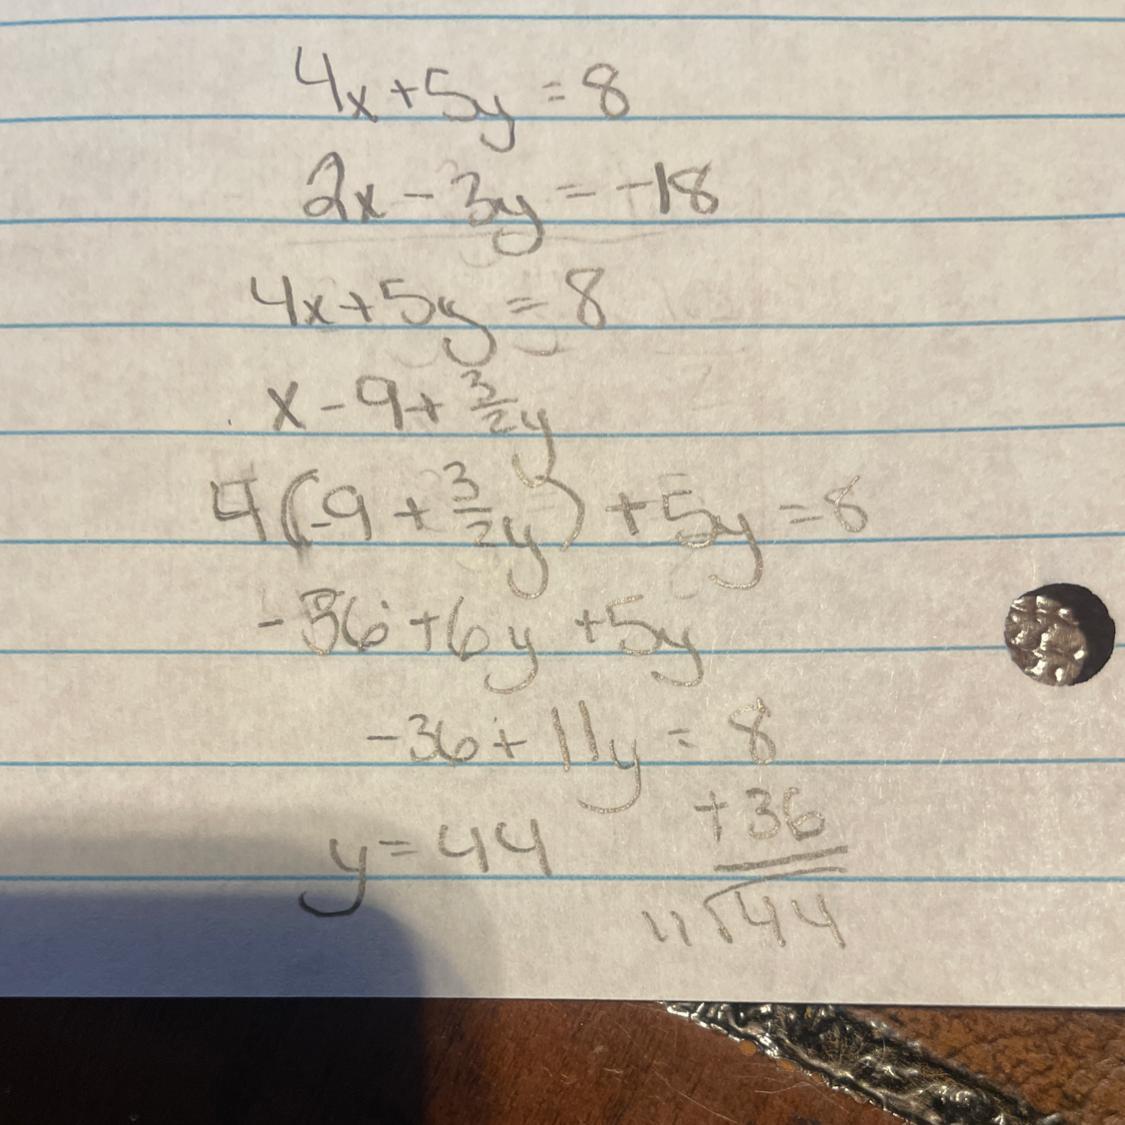 4x+5y=8
2x-3y=-18
4x+5y=8
x-9+3/2y
4(-9+3/2y)+5y=8
-36+6y+5y
-36+11y=8
+36
y=44
11√44